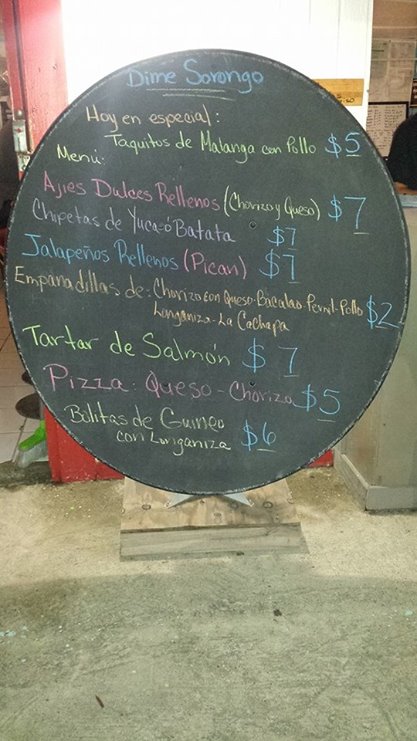 Dime Sorongo
Hoy en especial:
Taquitos de Malanga con Pollo $5
Menú:
Ajies Dulces Rellenos (Chorizo y Queso) $7
Chipetas de Yuca ó Batata $7
Jalapeños Rellenos (Pican) $7
Empanadillas de: Chorizo con Queso-Bacalao-Pernil-Pollo $2
Longaniza-La Cachapa
Tartar de Salmón $7
Pizza: Queso-Chorizo $5
Bolitas de Guineo
con Longaniza $6